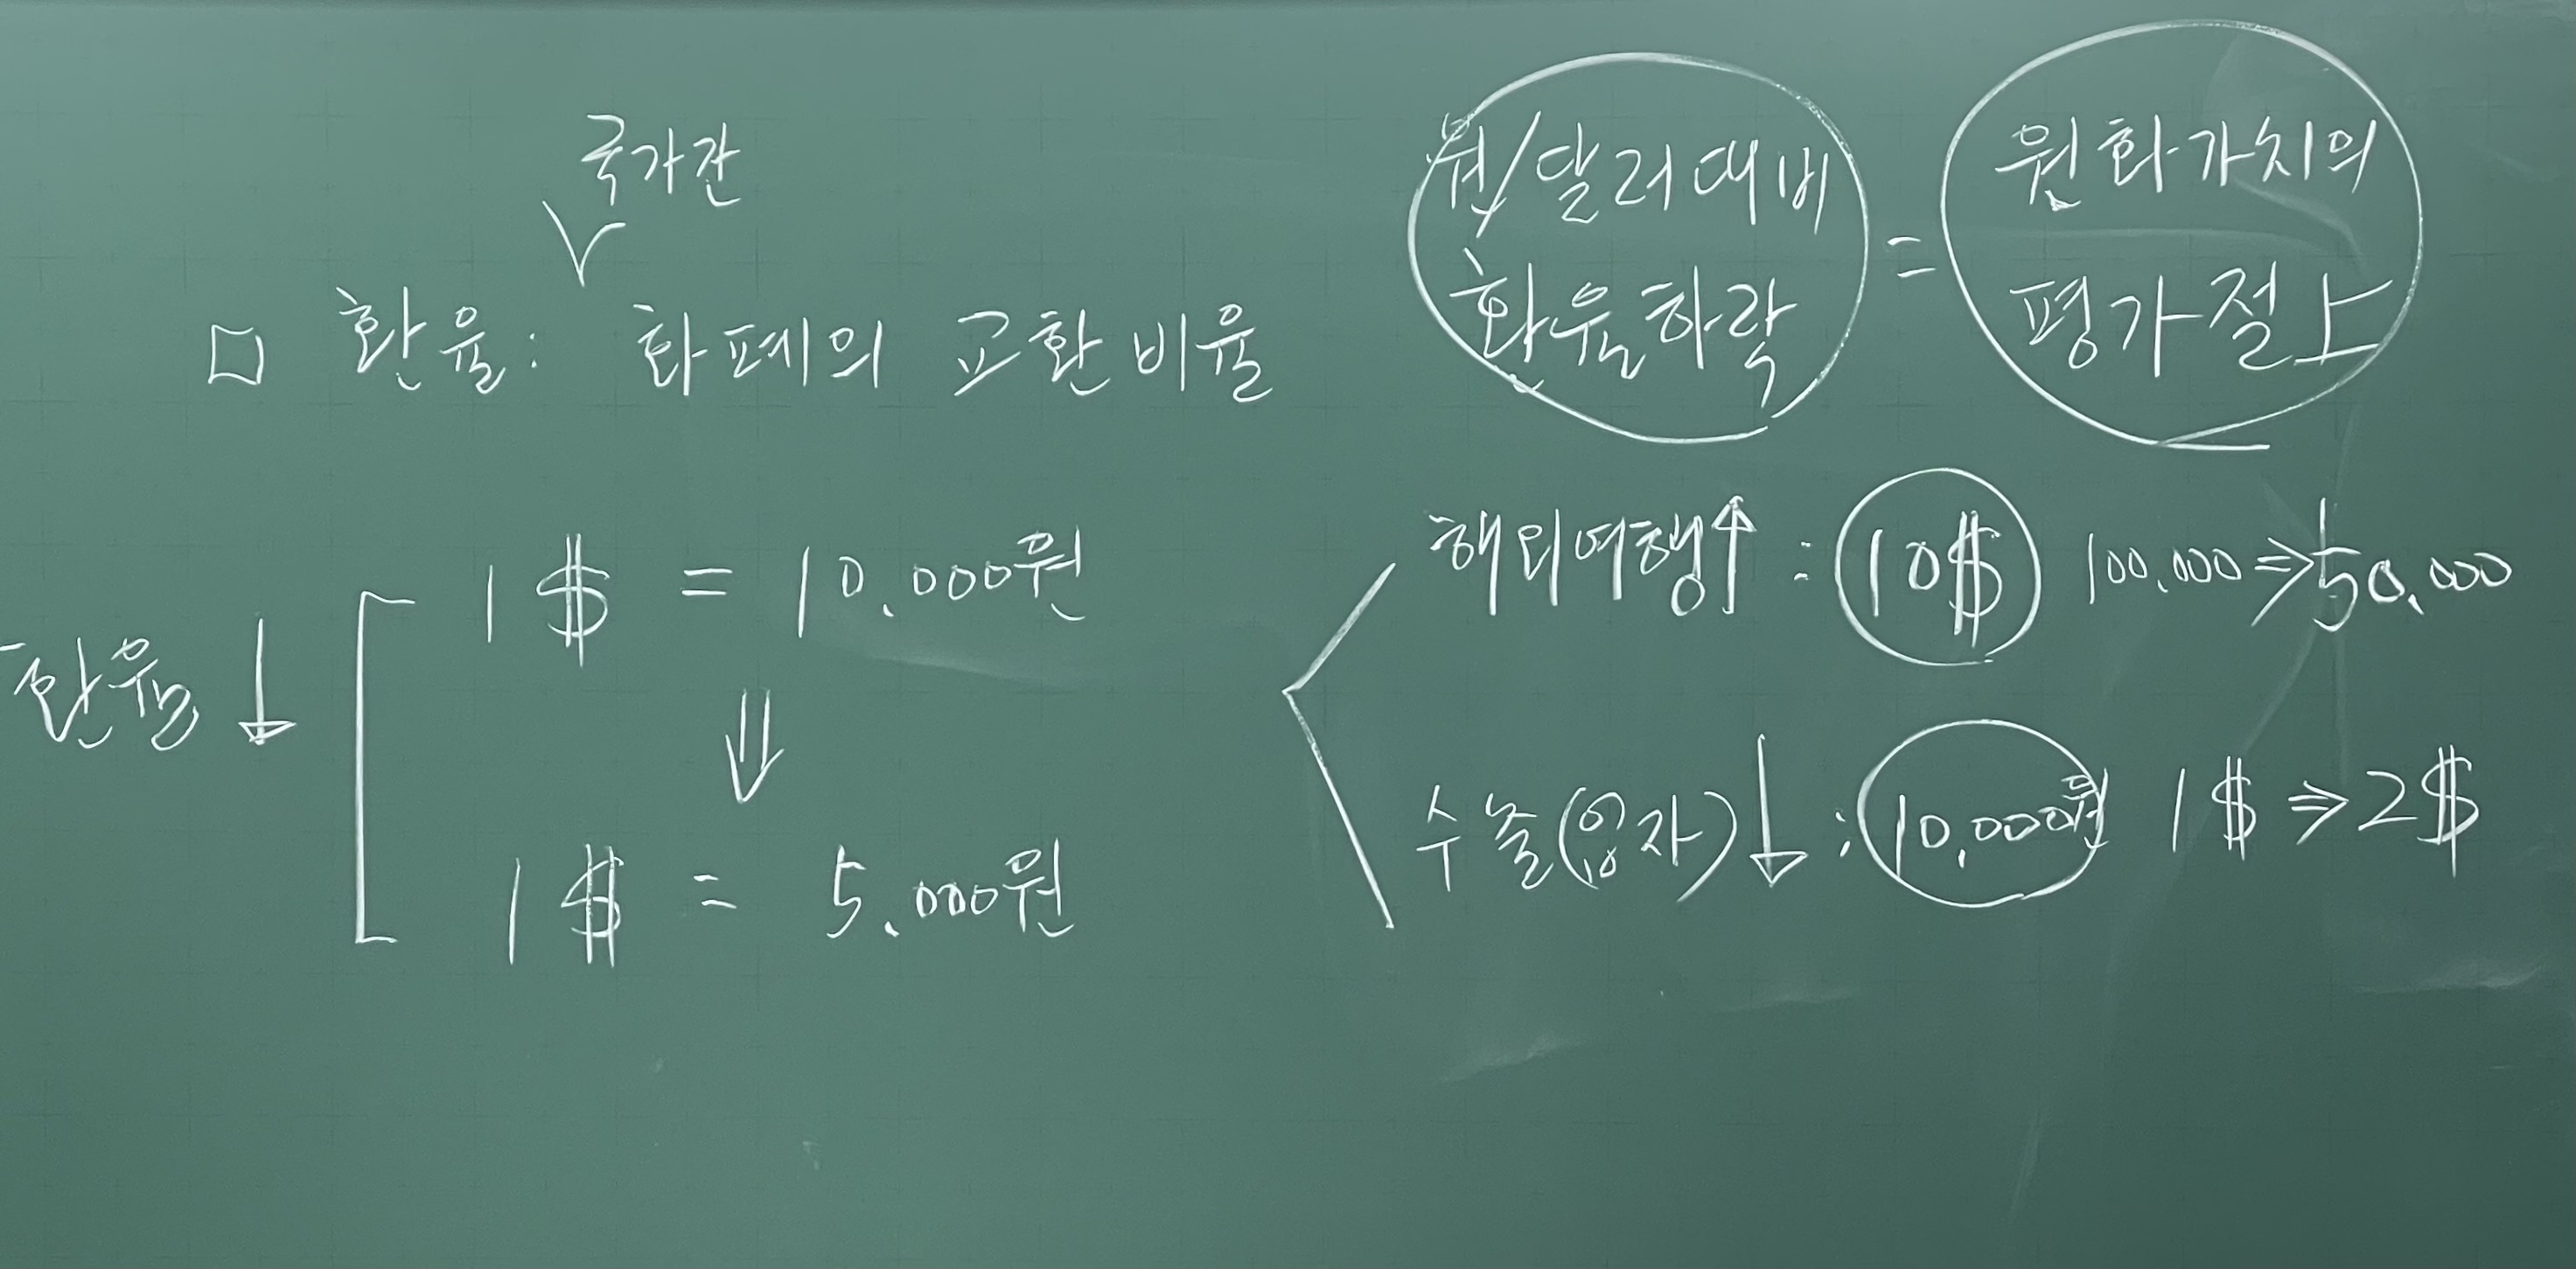 국가간
□ 환율: 화폐의 교환비율
원/달러대비 = 원화가치의
환율하락 평가절상
환율↓
1$ = 10.000원
⇓
1$ = 5.000원
해외여행↑ : 10$ 100.000⇒50.000
수출(입자)↓ : 10.000원 1$⇒2$